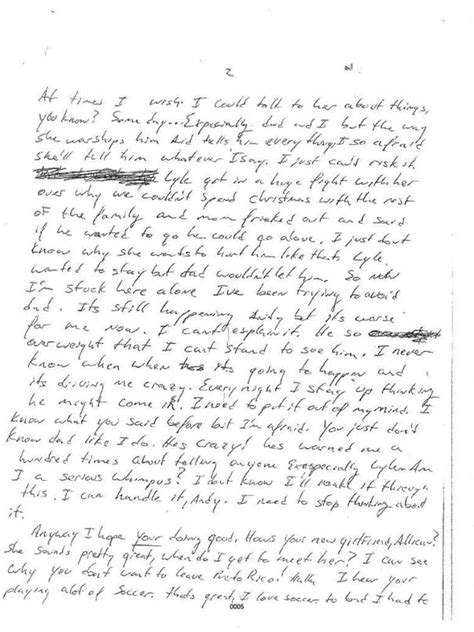 2
At times I wish I could talk to her about things,
you know? Some day... Expecially dad and I but the way
she worships him and tells him everything, I so afraid
she'll tell him whatever I say. I just can't risk it.
Lyle got in a huge fight with her
over why we couldn't spend christmas with the rest
of the family and mom freaked out and said
if he wanted to go he could go alone. I just dont
know why she wants to hurt him like that. Lyle
wanted to stay but dad wouldn't let him. So now
I'm stuck here alone I've been trying to avoid
dad. Its still happening Andy but its worse
for me now. I can't explain it. He so
overweight that I cant stand to see him. I never
know when when its going to happen and
its driving me crazy. Every night I stay up thinking
he might come in. I need to put it out of my mind. I
know what you said before but I'm afraid. You just don't
know dad like I do. Hes crazy! hes warned me a
hundred times about telling anyone Exespecially Lyle. Am
I a serious whimpus? I dont know I'll make it through
this. I can handle it, Andy. I need to stop thinking about
it.
Anyway I hope your doing good. Hows your new girlfriend,
She sounds pretty great, when do I get to meet her? I can see
why you dont want to leave Puerto Rico! Haha I hear your
playing alot of Soccer. thats great, I love soccer to but I had to
0005